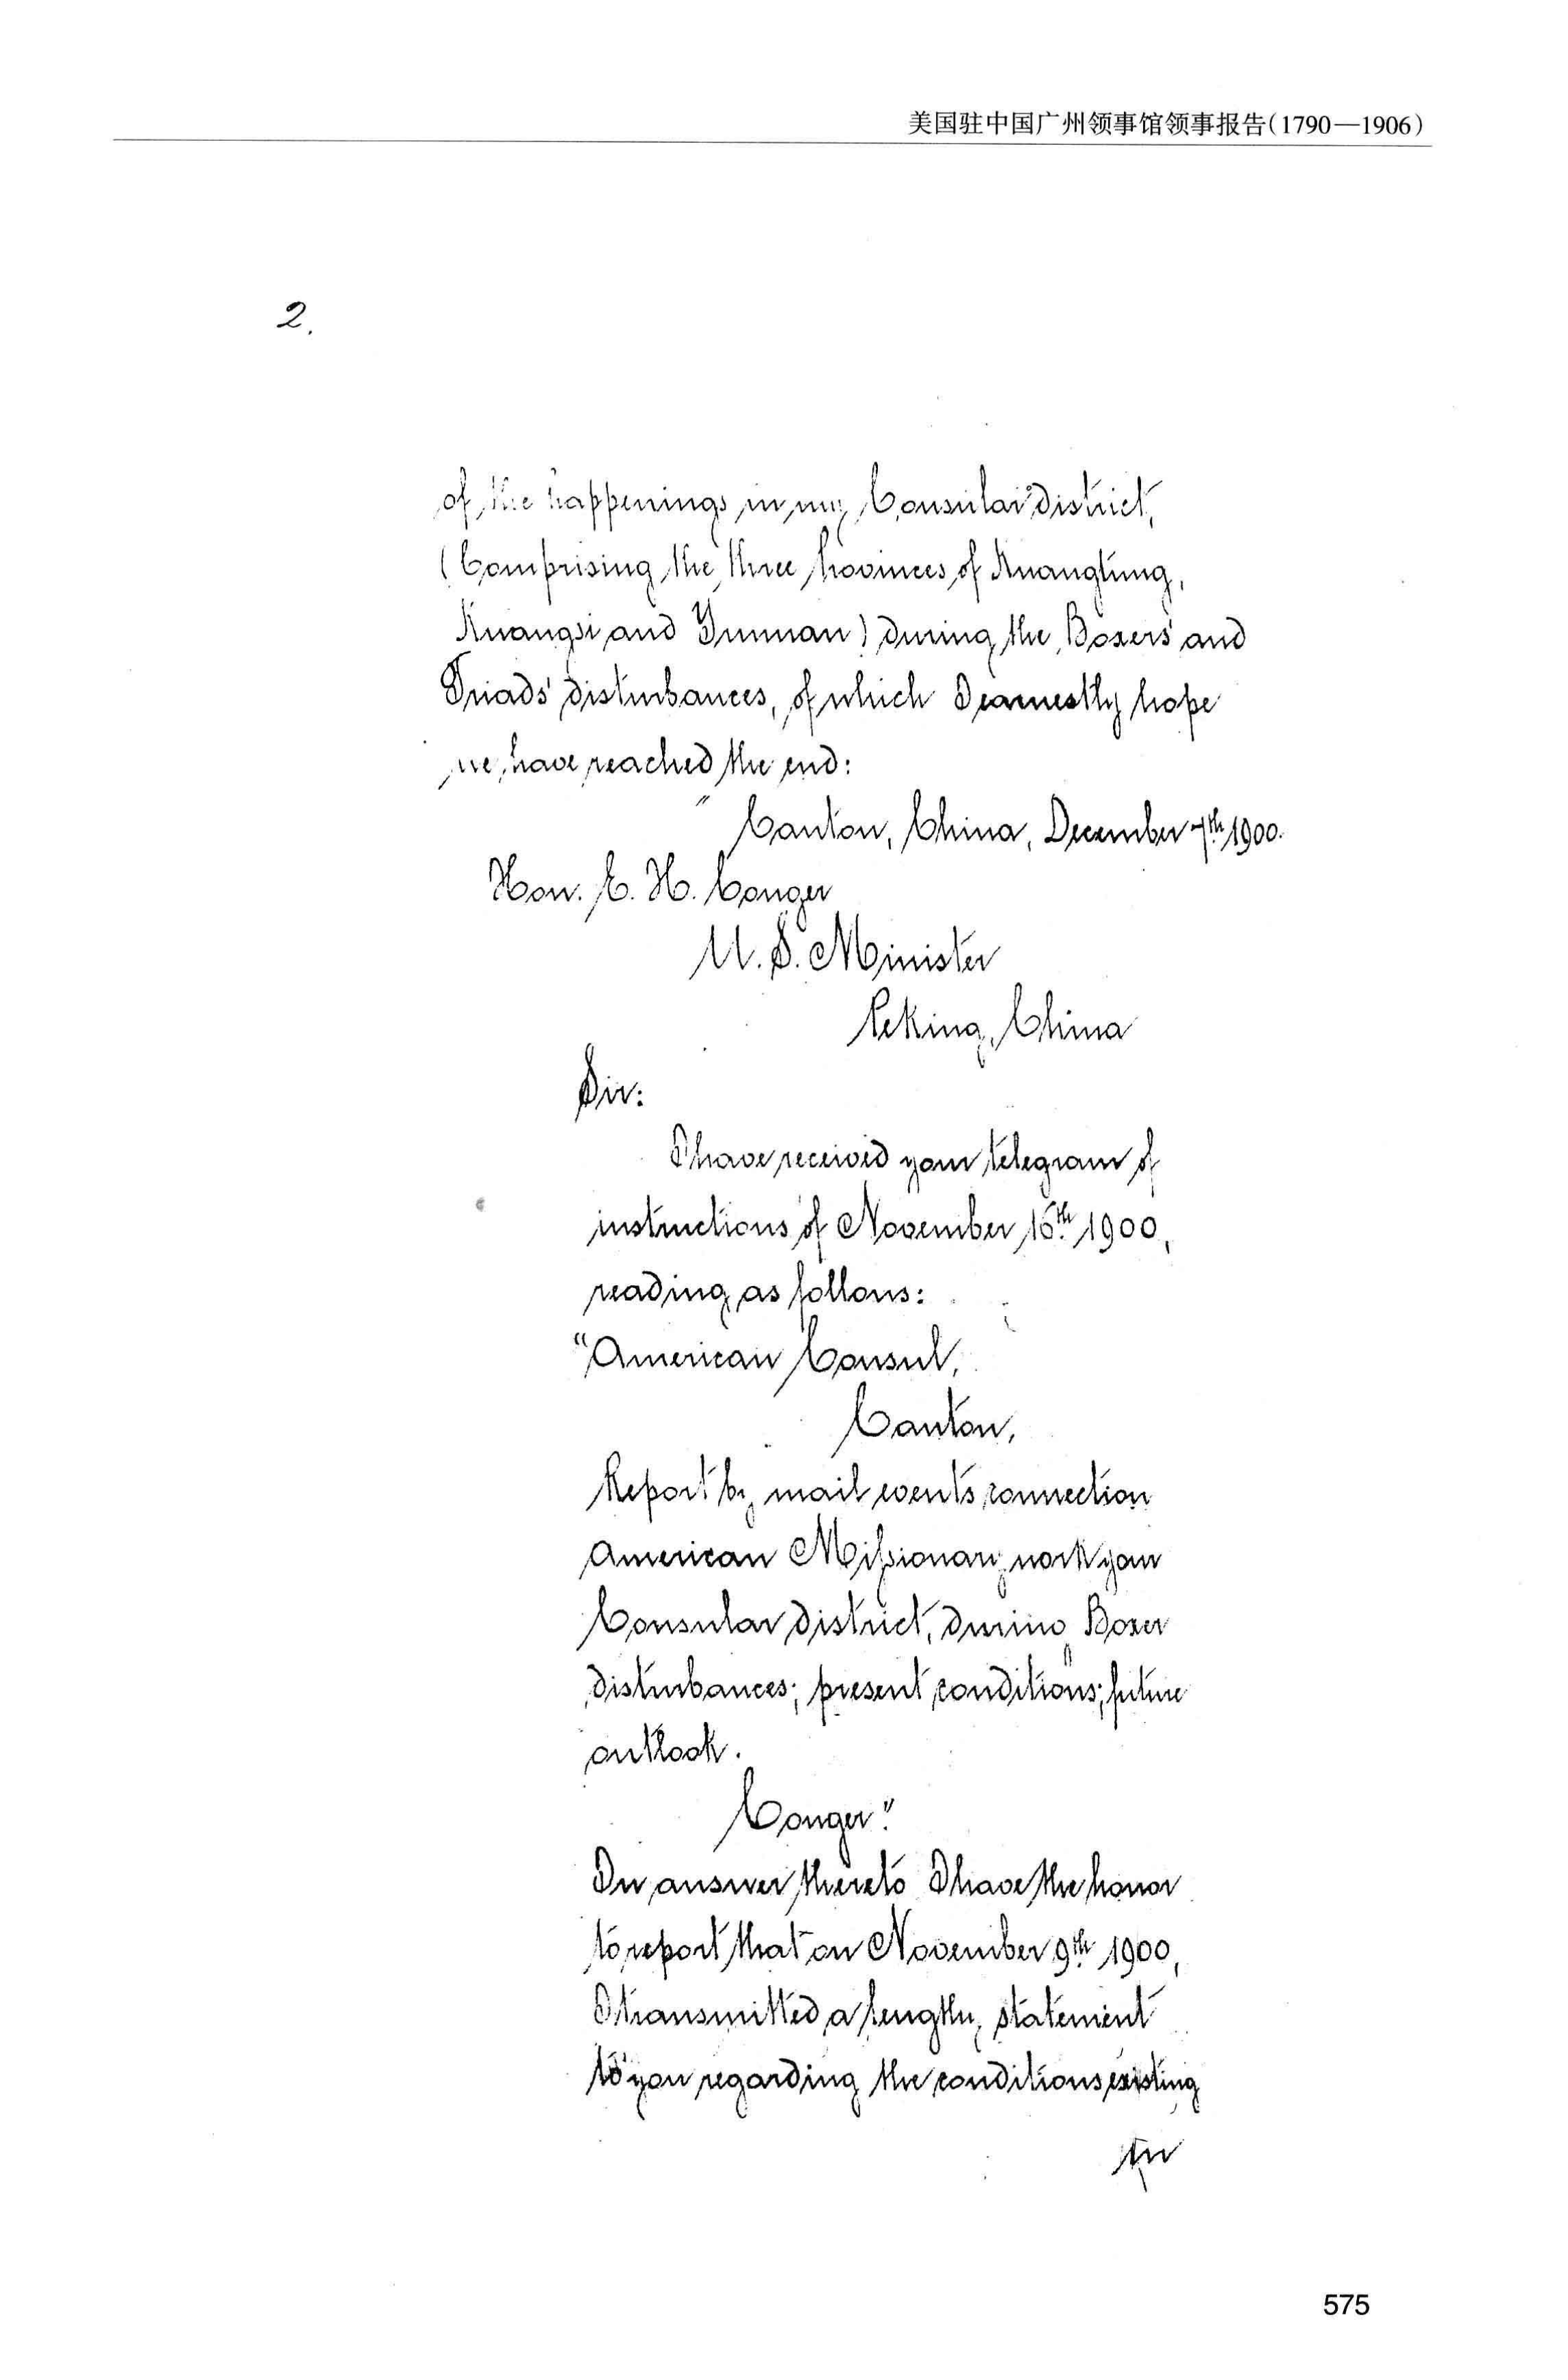 美国驻中国广州领事馆领事报告(1790—1906)
2.
of the happenings in my Consular district,
(Comprising the three provinces of Kuangtung,
Kuangsi and Yunnan) during the Boxers' and
Triads' disturbances, of which I earnestly hope
we have reached the end:
" Canton, China, December 7th 1900.
Hon. E. H. Conger
U. S. Minister
Peking, China
Sir:
I have received your telegram of
instructions of November 16th 1900,
reading as follows:
"American Consul,
Canton,
Report by mail events connection
American Missionary work your
Consular district, during Boxer
disturbances; present conditions; future
outlook.
Conger."
In answer thereto I have the honor
to report that on November 9th 1900,
I transmitted a lengthy statement
to you regarding the conditions existing
in
575